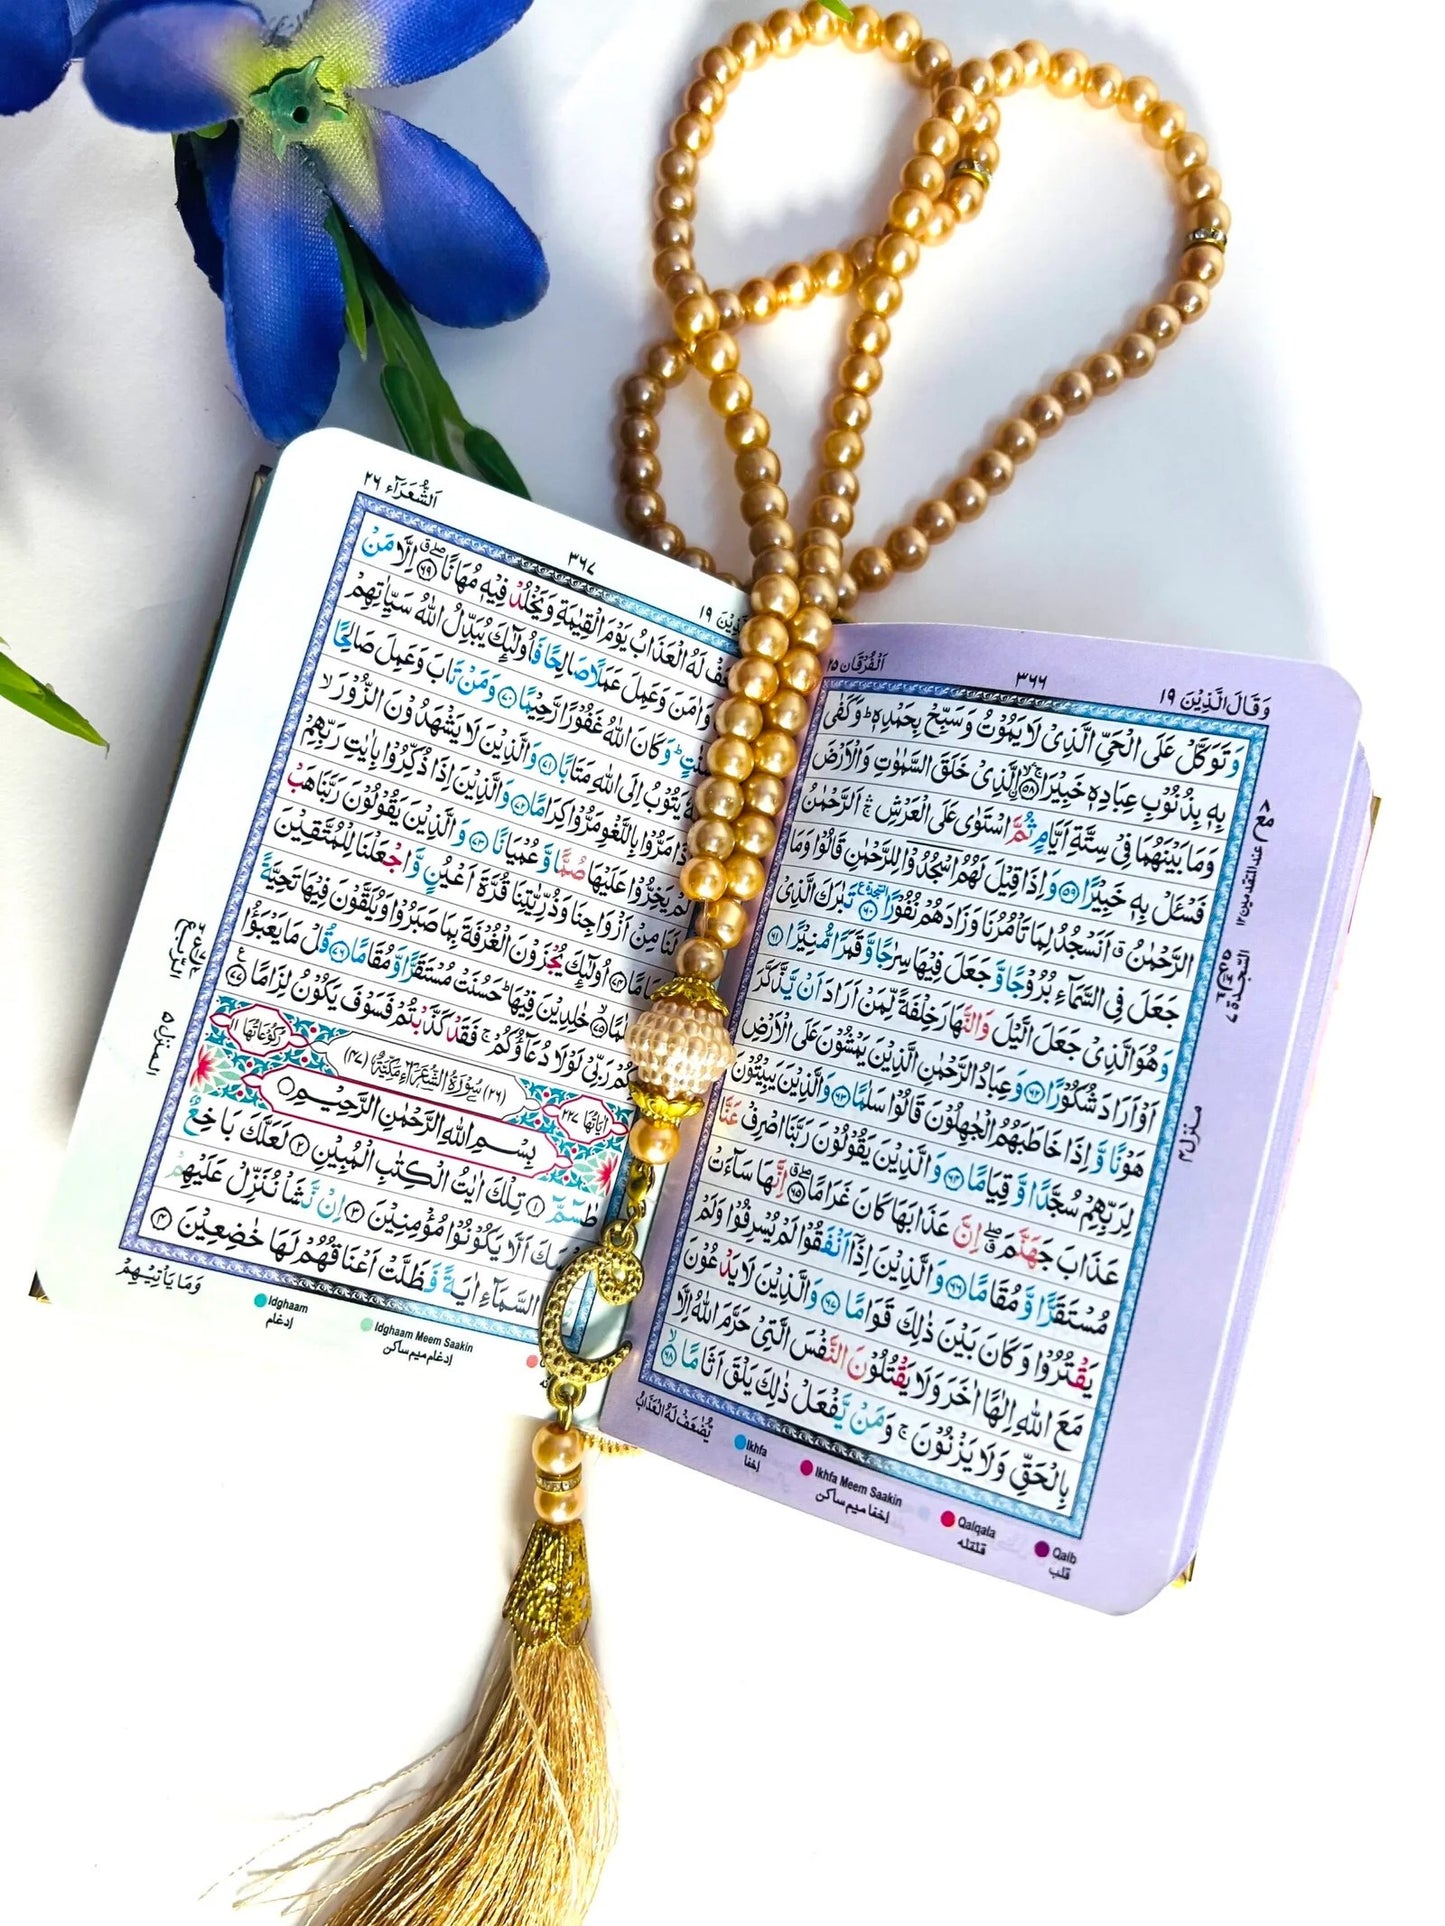 وَقَالَ الَّذِيْنَ ١٩ ٣٦٦ اَلْفُرْقَان ٢٥
وَتَوَكَّلْ عَلَى الْحَيِّ الَّذِىْ لَا يَمُوْتُ وَسَبِّحْ بِحَمْدِهٖ ؕ وَكَفٰى
بِهٖ بِذُنُوْبِ عِبَادِهٖ خَبِيْرَا ۛۚ ۙ ﴿٥٨﴾ الَّذِىْ خَلَقَ السَّمٰوٰتِ وَالْاَرْضَ
وَمَا بَيْنَهُمَا فِىْ سِتَّةِ اَيَّامٍ ثُمَّ اسْتَوٰى عَلَى الْعَرْشِ ۛۚ اَلرَّحْمٰنُ
فَسْـَٔلْ بِهٖ خَبِيْرًا ﴿٥٩﴾ وَاِذَا قِيْلَ لَهُمُ اسْجُدُوْا لِلرَّحْمٰنِ قَالُوْا وَمَا
الرَّحْمٰنُ ق اَنَسْجُدُ لِمَا تَاْمُرُنَا وَزَادَهُمْ نُفُوْرًا ﴿٦٠﴾ تَبٰرَكَ الَّذِىْ
جَعَلَ فِى السَّمَآءِ بُرُوْجًا وَّجَعَلَ فِيْهَا سِرٰجًا وَّقَمَرًا مُّنِيْرًا ﴿٦١﴾
وَهُوَ الَّذِىْ جَعَلَ الَّيْلَ وَالنَّهَارَ خِلْفَةً لِّمَنْ اَرَادَ اَنْ يَّذَّكَّرَ
اَوْ اَرَادَ شُكُوْرًا ﴿٦٢﴾ وَعِبَادُ الرَّحْمٰنِ الَّذِيْنَ يَمْشُوْنَ عَلَى الْاَرْضِ
هَوْنًا وَّاِذَا خَاطَبَهُمُ الْجٰهِلُوْنَ قَالُوْا سَلٰمًا ﴿٦٣﴾ وَالَّذِيْنَ يَبِيْتُوْنَ
لِرَبِّهِمْ سُجَّدًا وَّقِيَامًا ﴿٦٤﴾ وَالَّذِيْنَ يَقُوْلُوْنَ رَبَّنَا اصْرِفْ عَنَّا
عَذَابَ جَهَنَّمَ ۖ ق اِنَّ عَذَابَهَا كَانَ غَرَامًا ۖ ق ﴿٦٥﴾ اِنَّهَا سَآءَتْ
مُسْتَقَرًّا وَّمُقَامًا ﴿٦٦﴾ وَالَّذِيْنَ اِذَآ اَنْفَقُوْا لَمْ يُسْرِفُوْا وَلَمْ
يَقْتُرُوْا وَكَانَ بَيْنَ ذٰلِكَ قَوَامًا ﴿٦٧﴾ وَالَّذِيْنَ لَا يَدْعُوْنَ
مَعَ اللّٰهِ اِلٰهًا اٰخَرَ وَلَا يَقْتُلُوْنَ النَّفْسَ الَّتِىْ حَرَّمَ اللّٰهُ اِلَّا
بِالْحَقِّ وَلَا يَزْنُوْنَ ۚ وَمَنْ يَّفْعَلْ ذٰلِكَ يَلْقَ اَثَامًا ۙ ﴿٦٨﴾
يُّضٰعَفْ لَهُ الْعَذَابُ
مع عند المتقدمين ١٢
السجدة ٧
منزل ٤
Ikhfa
إخفا
Ikhfa Meem Saakin
إخفا ميم ساكن
Qalqala
قلقله
Qalb
قلب
١٩ ٣٦٧ اَلشُّعَرَآء ٢٦
لَهُ الْعَذَابُ يَوْمَ الْقِيٰمَةِ وَيَخْلُدْ فِيْهٖ مُهَانًا ۖ ق ﴿٦٩﴾ اِلَّا مَنْ
وَاٰمَنَ وَعَمِلَ عَمَلًا صَالِحًا فَاُولٰٓئِكَ يُبَدِّلُ اللّٰهُ سَيِّاٰتِهِمْ
ؕ وَكَانَ اللّٰهُ غَفُوْرًا رَّحِيْمًا ﴿٧٠﴾ وَمَنْ تَابَ وَعَمِلَ صَالِحًا
يَتُوْبُ اِلَى اللّٰهِ مَتَابًا ﴿٧١﴾ وَالَّذِيْنَ لَا يَشْهَدُوْنَ الزُّوْرَ ۙ
مَرُّوْا بِاللَّغْوِ مَرُّوْا كِرَامًا ﴿٧٢﴾ وَالَّذِيْنَ اِذَا ذُكِّرُوْا بِاٰيٰتِ رَبِّهِمْ
لَمْ يَخِرُّوْا عَلَيْهَا صُمًّا وَّعُمْيَانًا ﴿٧٣﴾ وَالَّذِيْنَ يَقُوْلُوْنَ رَبَّنَا هَبْ
لَنَا مِنْ اَزْوَاجِنَا وَذُرِّيّٰتِنَا قُرَّةَ اَعْيُنٍ وَّاجْعَلْنَا لِلْمُتَّقِيْنَ
﴿٧٤﴾ اُولٰٓئِكَ يُجْزَوْنَ الْغُرْفَةَ بِمَا صَبَرُوْا وَيُلَقَّوْنَ فِيْهَا تَحِيَّةً
﴿٧٥﴾ خٰلِدِيْنَ فِيْهَا ؕ حَسُنَتْ مُسْتَقَرًّا وَّمُقَامًا ﴿٧٦﴾ قُلْ مَا يَعْبَؤُا
رَبِّىْ لَوْلَا دُعَآؤُكُمْ ۚ فَقَدْ كَذَّبْتُمْ فَسَوْفَ يَكُوْنُ لِزَامًا ﴿٧٧﴾
اٰيَاتُهَا ٢٢٧ (٢٦) سُوْرَةُ الشُّعَرَآءِ مَكِّيَّةٌ (٤٧) رُكُوْعَاتُهَا ١١
بِسْمِ اللّٰهِ الرَّحْمٰنِ الرَّحِيْمِ
طٰسٓمّٓ ﴿١﴾ تِلْكَ اٰيٰتُ الْكِتٰبِ الْمُبِيْنِ ﴿٢﴾ لَعَلَّكَ بَاخِعٌ
اَلَّا يَكُوْنُوْا مُؤْمِنِيْنَ ﴿٣﴾ اِنْ نَّشَاْ نُنَزِّلْ عَلَيْهِمْ
السَّمَآءِ اٰيَةً فَظَلَّتْ اَعْنَاقُهُمْ لَهَا خٰضِعِيْنَ ﴿٤﴾
وَمَا يَاْتِيْهِمْ
المنزل ٥
Idghaam
إدغام
Idghaam Meem Saakin
إدغام ميم ساكن